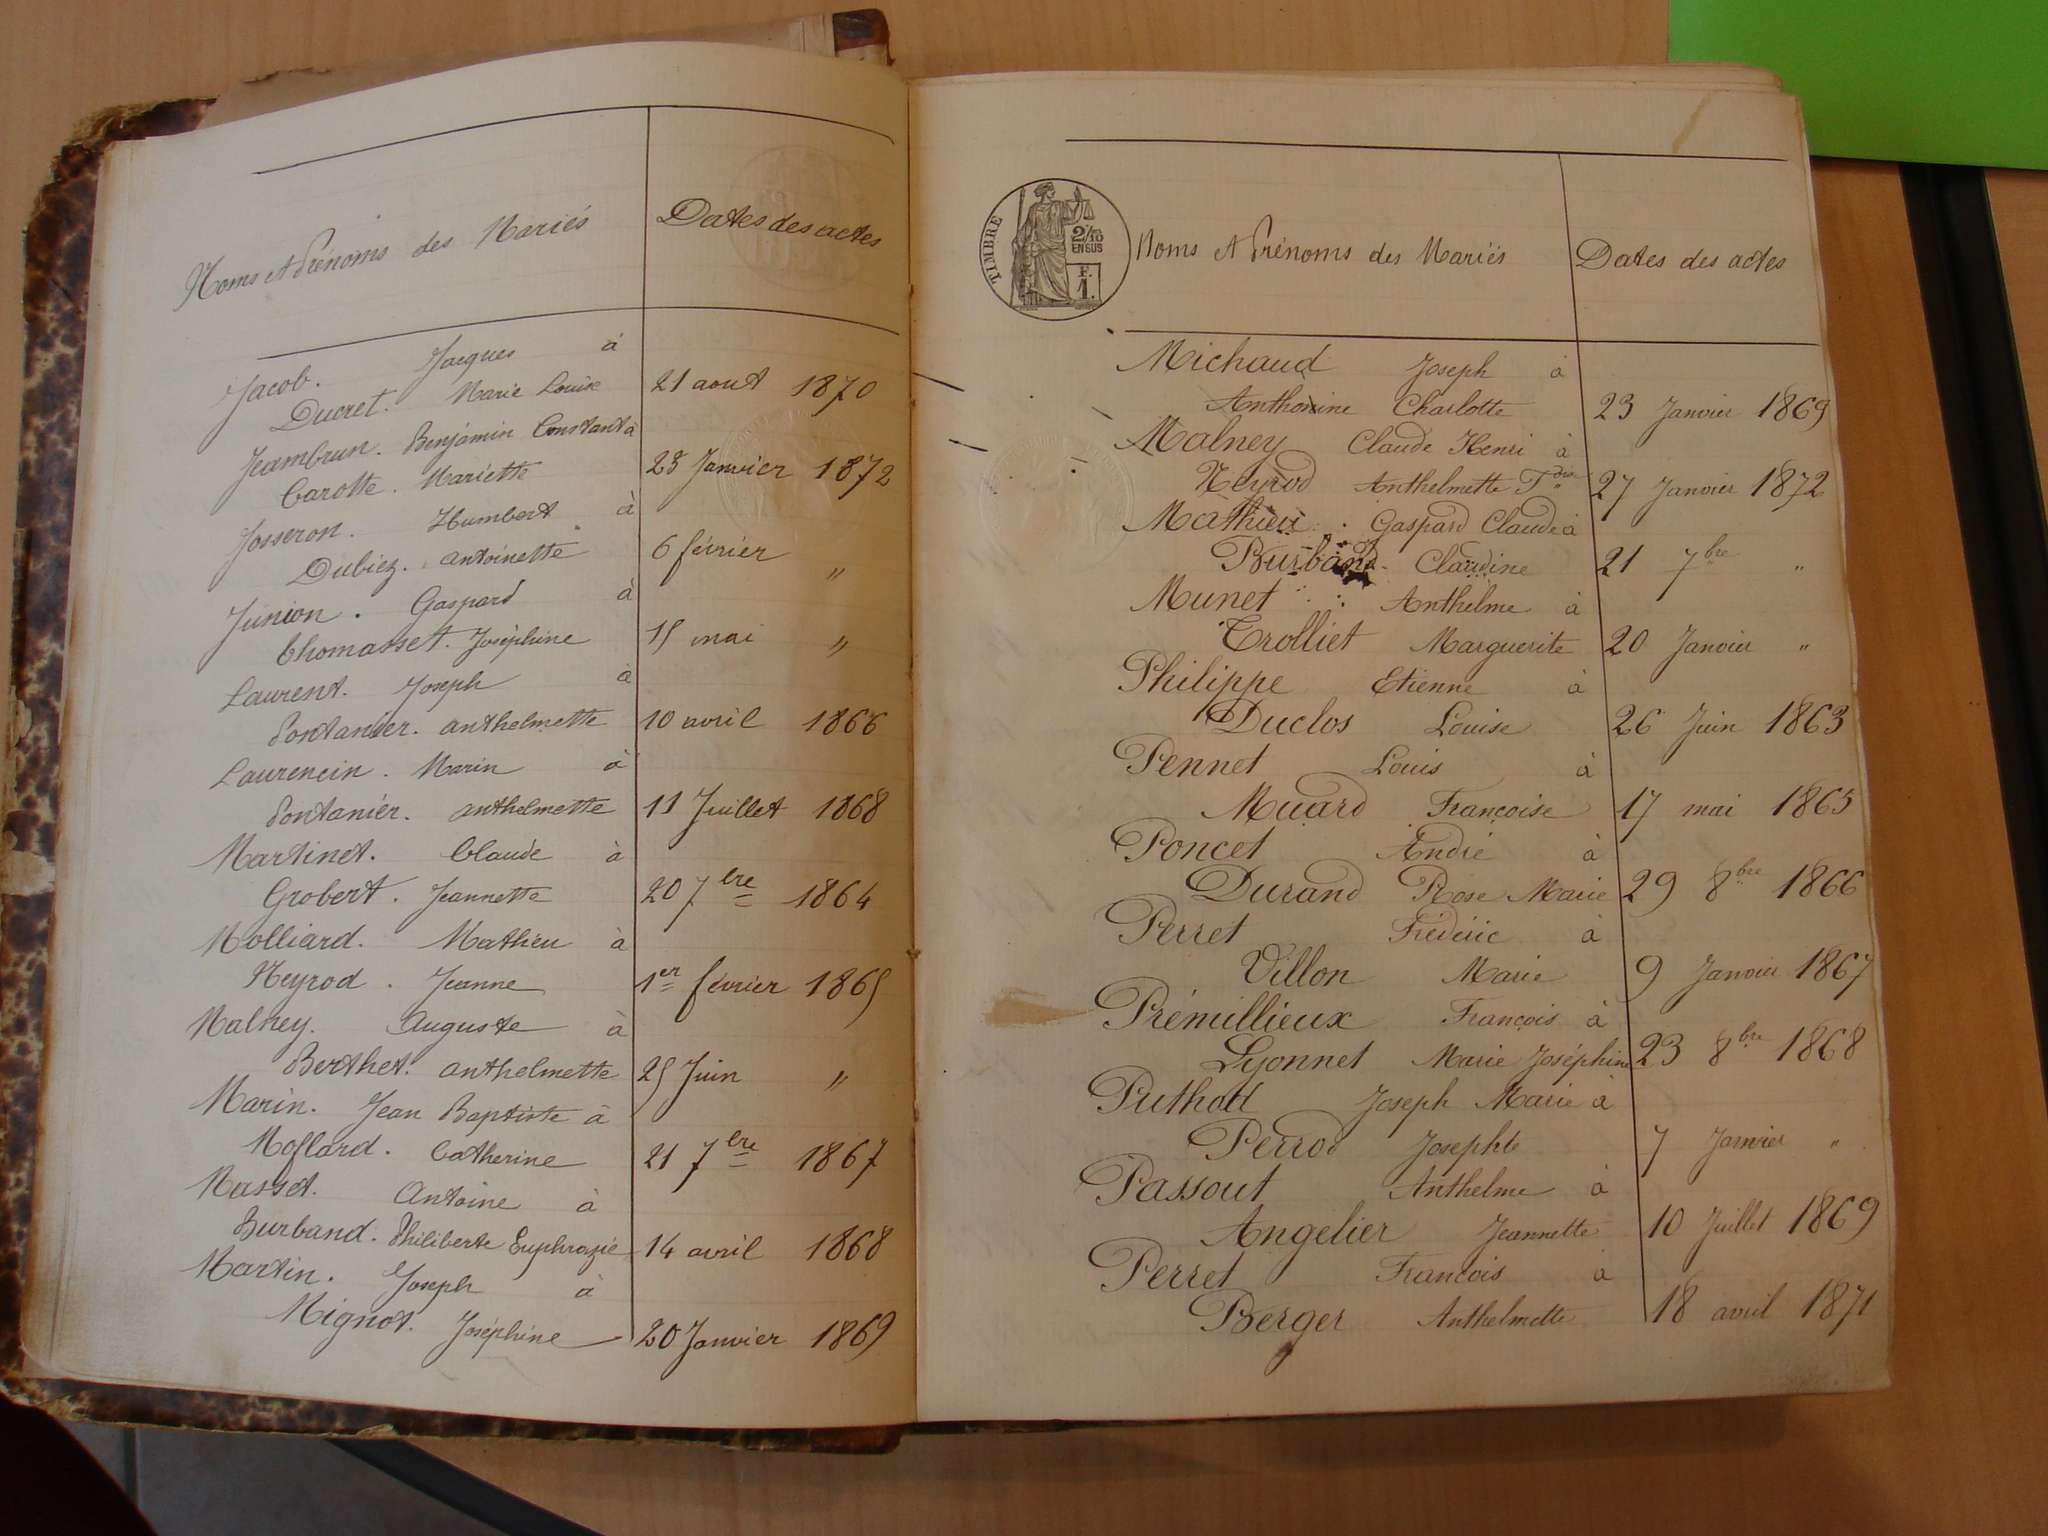 Noms et Prénoms des Mariés Dates des actes
Jacob. Jacques à
Ducret. Marie Louise 21 aout 1870
Jeambrun. Benjamin Constant à
Carotte. Mariette 23 Janvier 1872
Josseron. Humbert à
Dubiez. antoinette 6 février "
Junion. Gaspard à
Thomasset. Joséphine 15 mai "
Laurent. Joseph à
Pontanier. anthelmette 10 avril 1866
Laurencin. Marin à
Pontanier. anthelmette 11 Juillet 1868
Martinet. Claude à
Grobert. Jeannette 20 7bre 1864
Molliard. Mathieu à
Neyrod. Jeanne 1er février 1865
Malney. Auguste à
Berthet. anthelmette 25 Juin "
Marin. Jean Baptiste à
Moflard. Catherine 21 7bre 1867
Masset. Antoine à
Burband. Philiberte Euphrazie 14 avril 1868
Martin. Joseph à
Mignot. Joséphine 20 Janvier 1869
TIMBRE
2/10
EN SUS
F.
1.
Noms et Prénoms des Mariés Dates des actes
Michaud Joseph à
Anthonine Charlotte 23 Janvier 1869
Malney Claude Henri à
Neyrod Anthelmette 27 Janvier 1872
Mathieu Gaspard Claude à
Burband Claudine 21 7bre "
Munet Anthelme à
Trolliet Marguerite 20 Janvier "
Philippe Etienne à
Duclos Louise 26 Juin 1863
Pennet Louis à
Muard Françoise 17 mai 1865
Poncet André à
Durand Rose Marie 29 8bre 1866
Perret Frédéric à
Villon Marie 9 Janvier 1867
Prémillieux François à
Lyonnet Marie Joséphine 23 8bre 1868
Puthod Joseph Marie à
Perrod Josephte 7 Janvier "
Passout Anthelme à
Angelier Jeannette 10 Juillet 1869
Perret François à
Berger Anthelmette 18 avril 1871